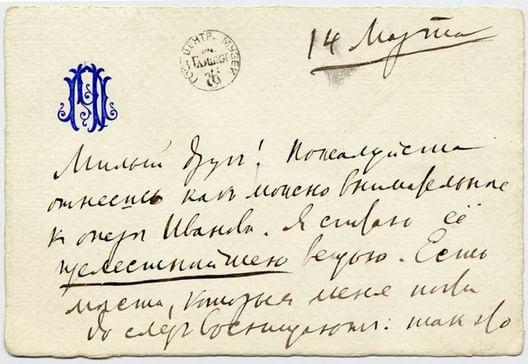 14 Марта
ГОС. ЦЕНТР. МУЗЕЙ
Милый другъ! Пожалуйста
отнесись какъ можно внимательнее
къ оперѣ Иванова. Я считаю её
прелестнѣйшею вещью. Есть
места, которыя меня
до слёзъ восхищаютъ: таково